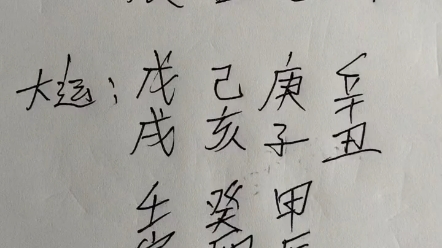 大运：戊 己 庚 辛
戌 亥 子 丑
壬 癸 甲